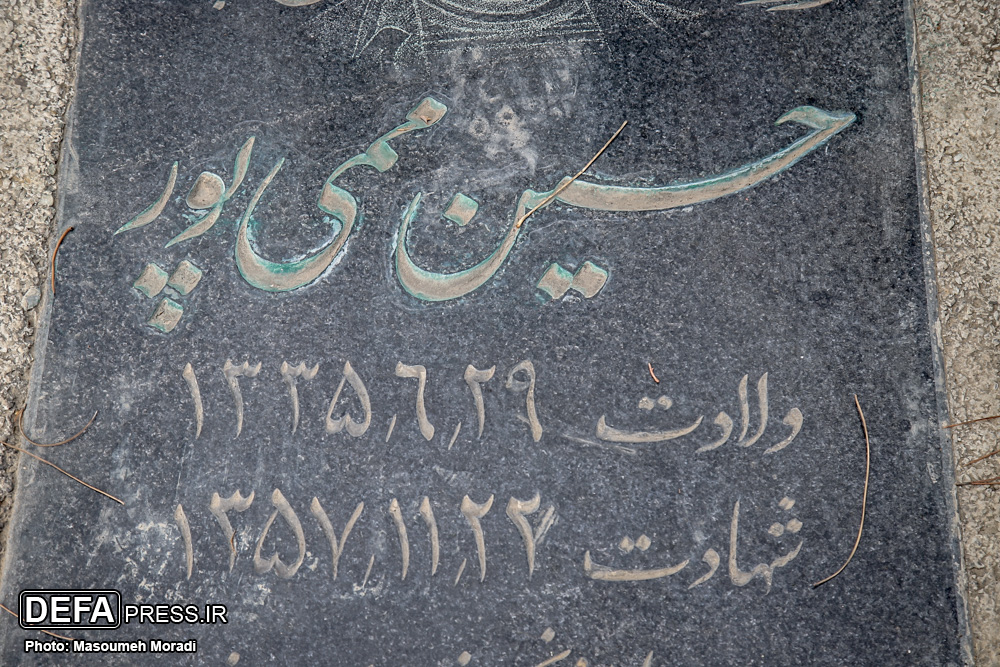 حسین نمی پور
ولادت ۱۳۳۵٫۶٫۲۹
شهادت ۱۳۵۷٫۱۱٫۲۲
DEFAPRESS.IR
Photo: Masoumeh Moradi